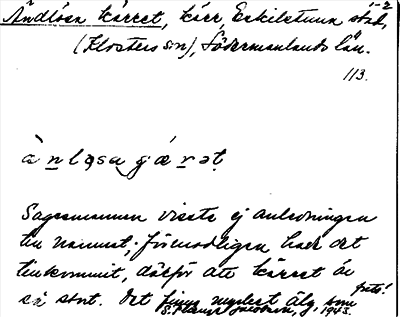 1-2
Ändlösa kärret, kärr, Eskilstuna stad,
(Klosters sn), Södermanlands län.
113.
Sagesmannen visste ej anledningen
till namnet; förmodligen har det
tillkommit, därför att kärret är
så stort. Det finns mycket älg som
1945.